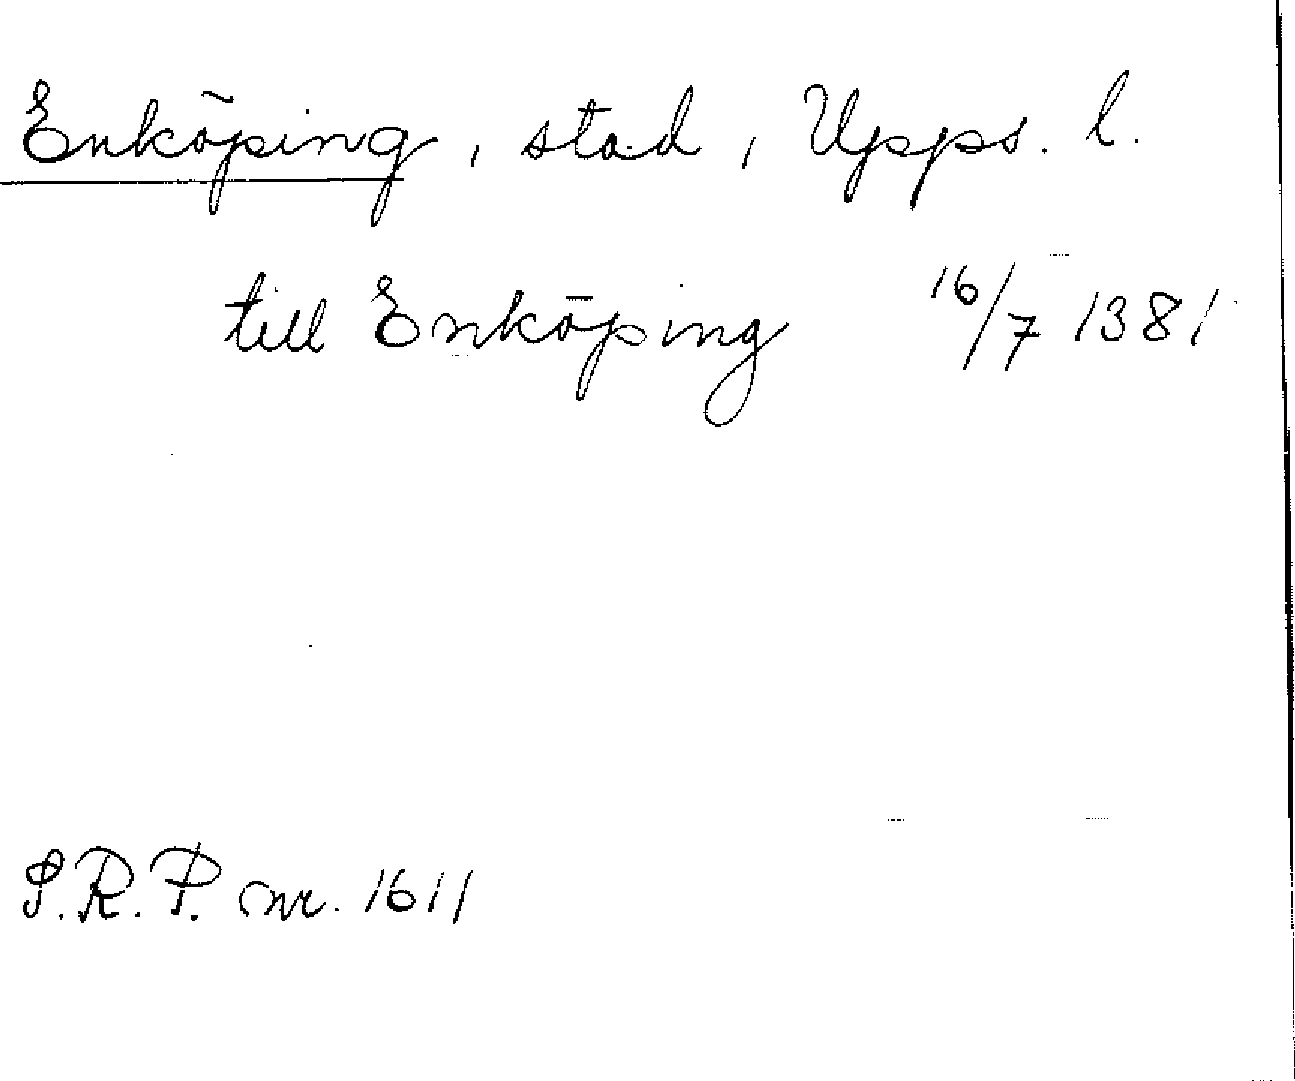 Enköping, stad, Upps. l.
till Enköping 16/7 1381
S.R.P. nr. 1611